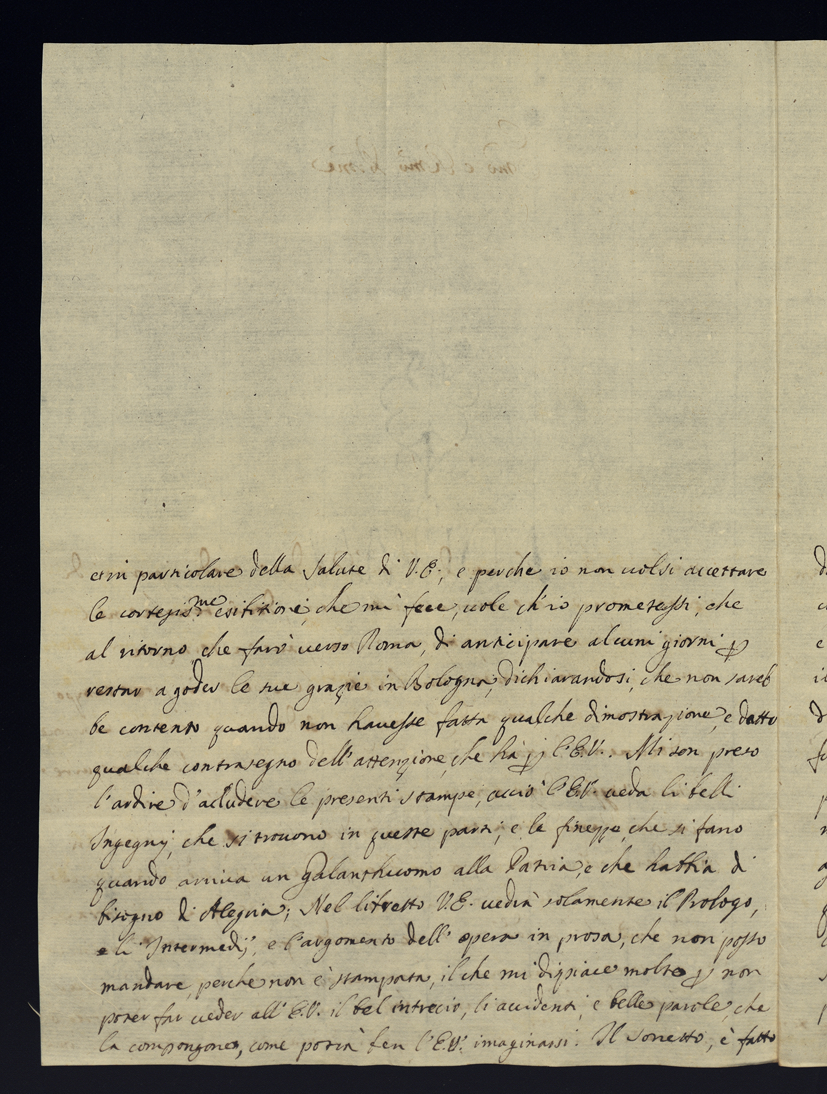 et in particolare della Salute di V.E., e perche io non volsi accettare
le cortesis.me esibitioni, che mi fece, vole ch'io prometessi, che
al ritorno, che farò verso Roma, di anticipare alcuni giorni p
restar a goder le sue grazie in Bologna, dichiarandosi, che non sareb
be contento quando non havesse fatta qualche dimostrazione, e datto
qualche contrasegno dell'attenzione, che hà p l'E.V. Mi son preso
l'ardire d'acludere le presenti stampe, acciò l'E.V. veda li belli
Ingegnj, che si trovono in queste parti, e le finezze, che si fano
quando ariva un Galanthuomo alla Patria, e che habbia di
bisogno di Alegria; Nel libretto V.E. vedrà solamente il Prologo,
e li Intermedj, e l'argomento dell'opera in prosa, che non posso
mandare, perche non è stampata, il che mi dispiace molto p non
poter far veder all'E.V. il bel intrecio, li accidenti, e belle parole, che
la compongono, come potrà ben l'E.V. imaginarsi. Il sonetto, è fatto